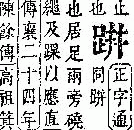 正
跰
正字通
同跰
也居足兩旁磽
繩及踝以應直
傳襄二十四
陳餘傳高祖箕